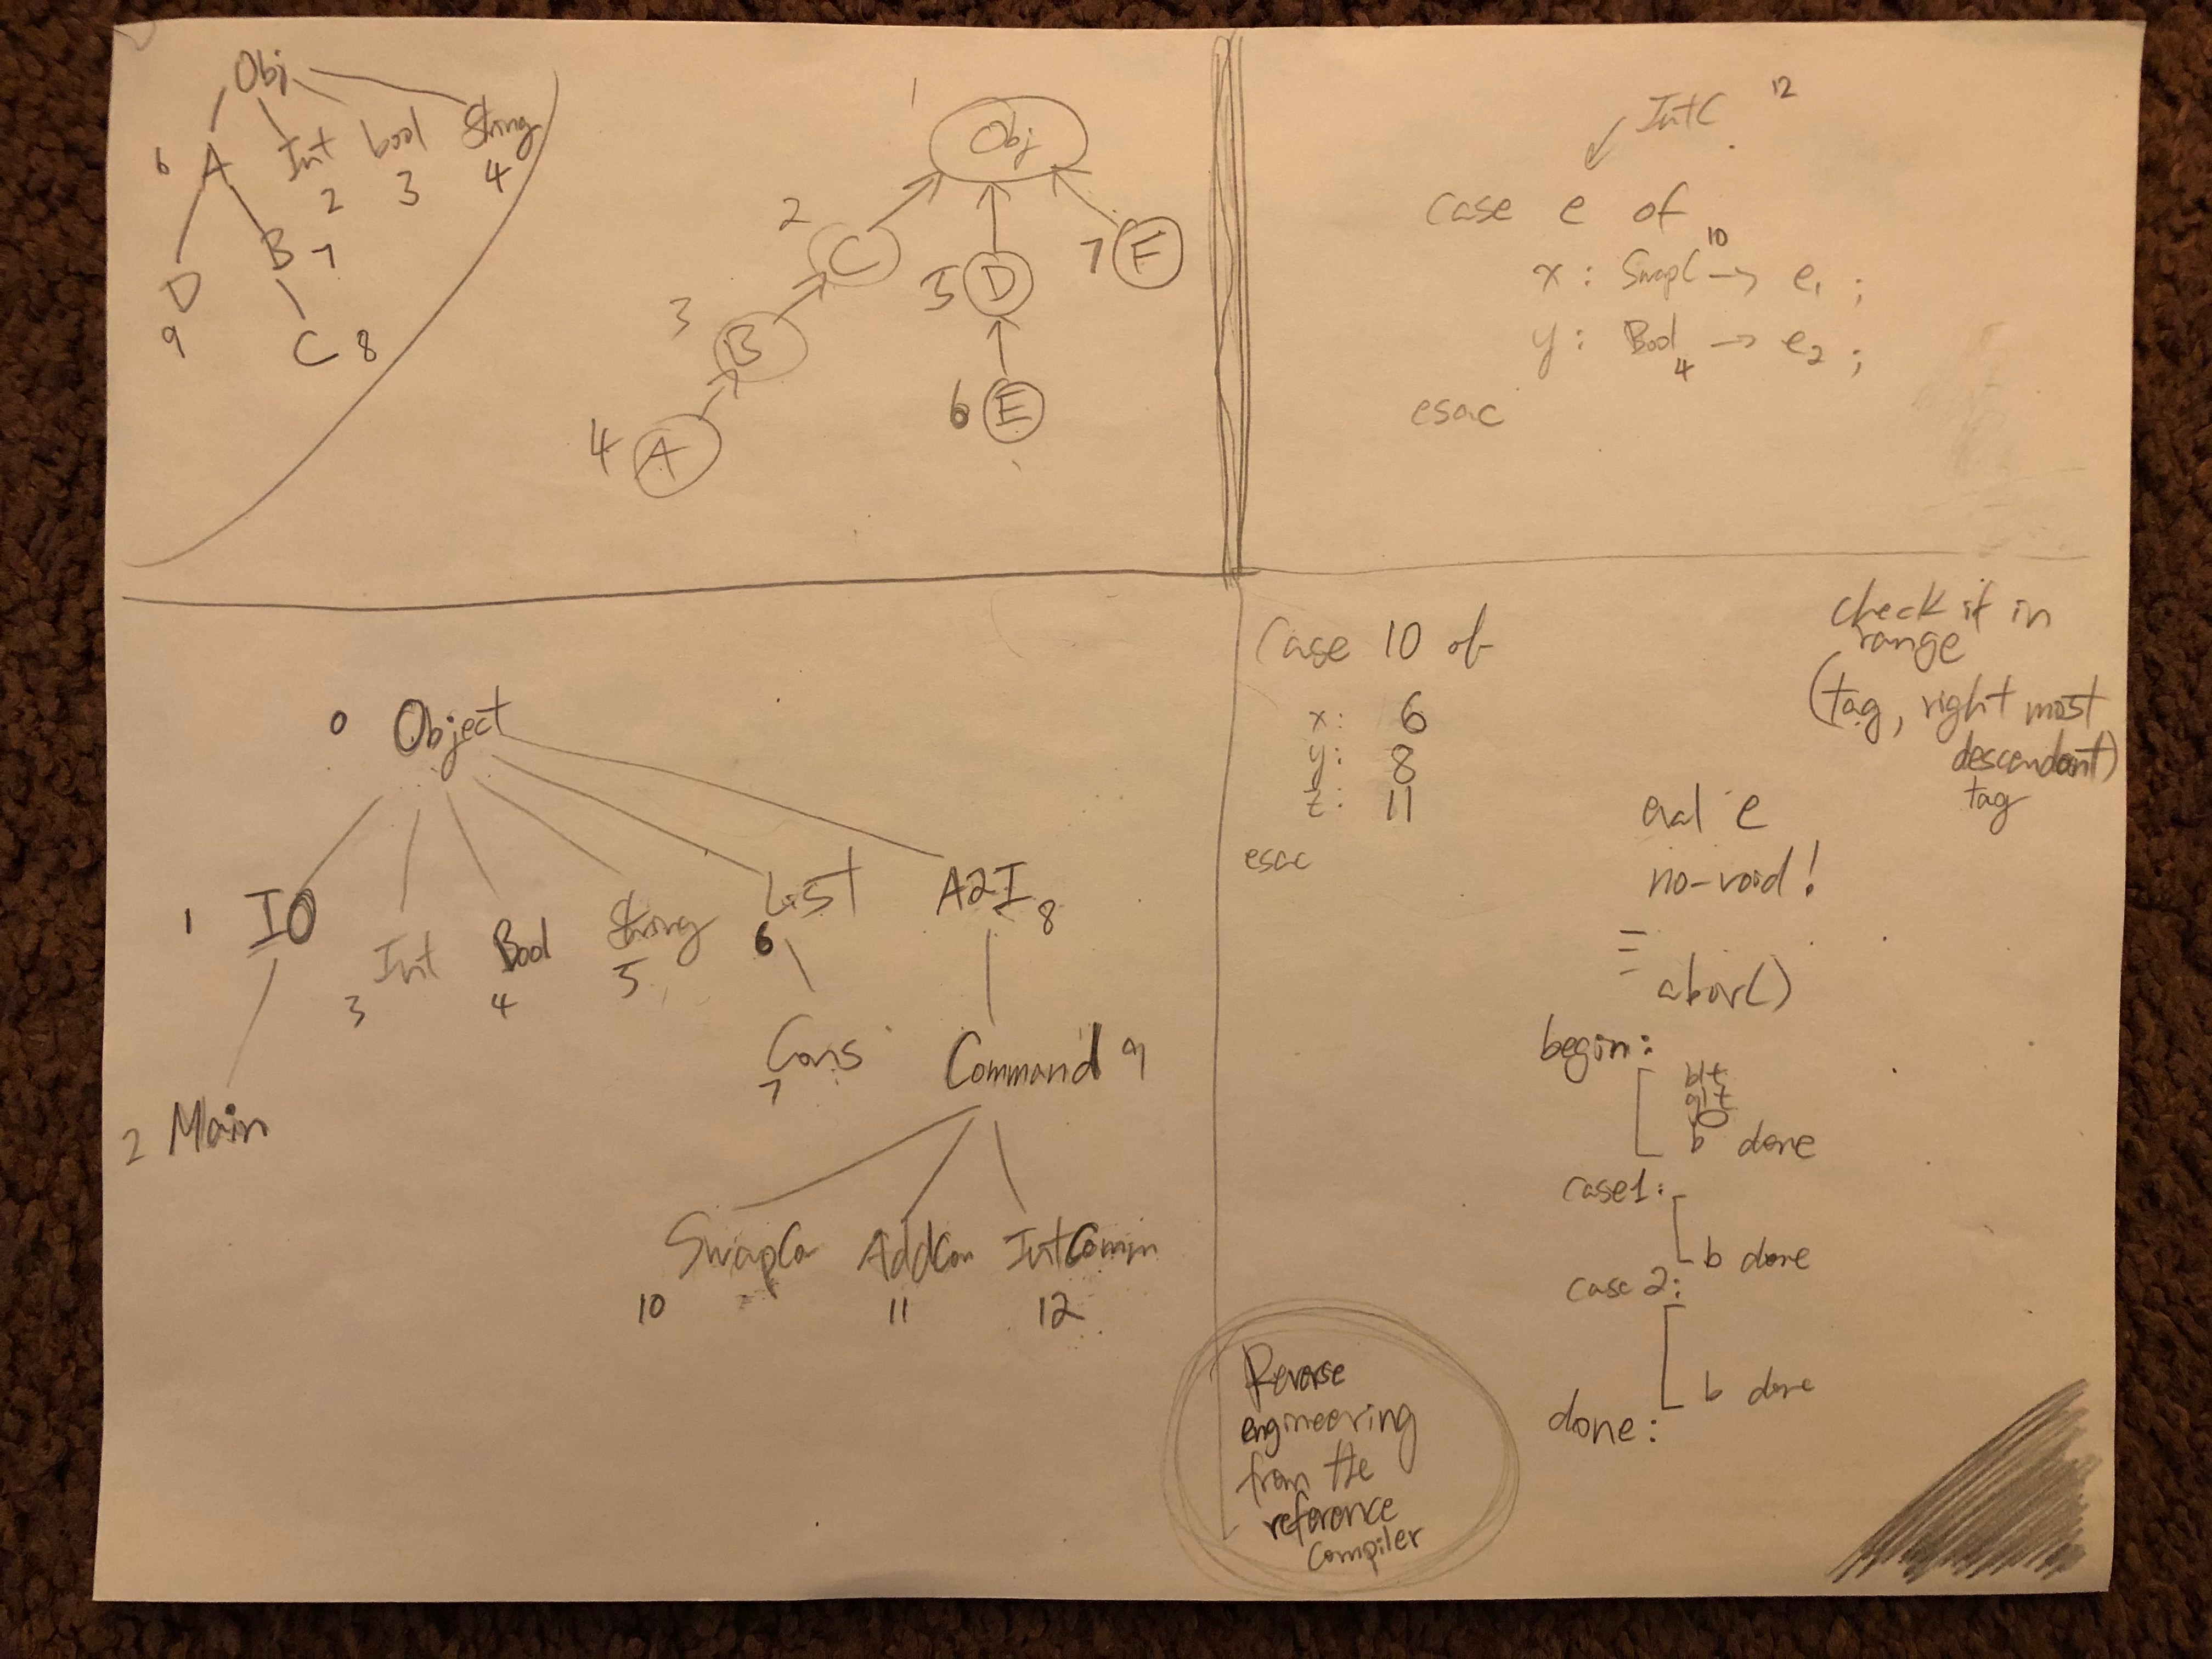 Obj
6 A Int bool String
2 3 4
D B 7
9 C 8
1 Obj
2 C 5 D 7 F
3 B
6 E
4 A
IntC 12
case e of
x : SwapC 10 → e1 ;
y : Bool 4 → e2 ;
esac
0 Object
1 IO 3 Int 4 Bool 5 String 6 List A2I 8
2 Main 7 Cons Command 9
SwapCo AddCom IntComm
10 11 12
Case 10 of
x: 6
y: 8
z: 11
esac
check if in
range
(tag, right most
descendant)
tag
eval e
no-void!
abort()
begin:
blt
bgt
b done
case1:
b done
case 2:
b done
done:
Reverse
engineering
from the
reference
compiler